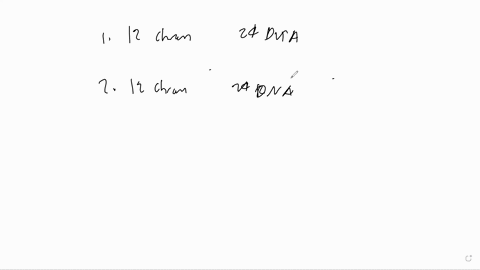 1. 12 chrom 24 DNA
2. 12 chrom 24 DNA